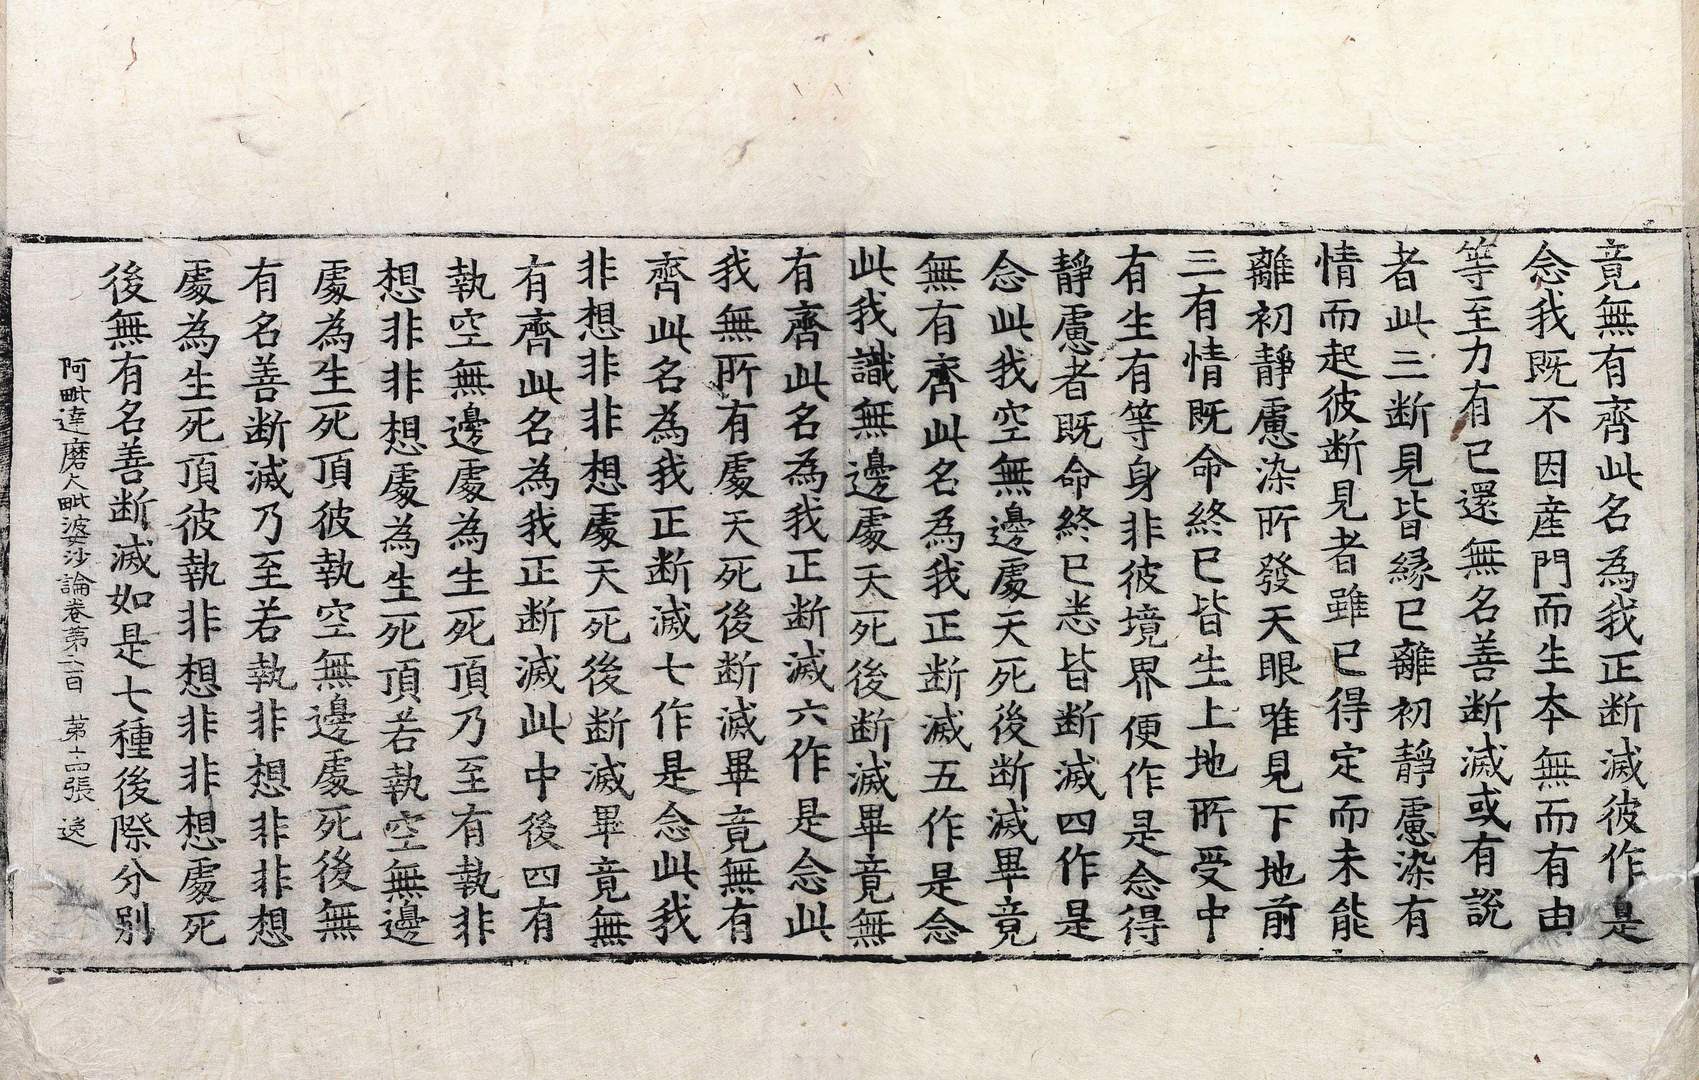 竟無有齊此名為我正断滅彼作是
念我既不因産門而生本無而有由
等至力有已還無名善断滅或有說
者此三断見皆縁已離初靜慮染有
情而起彼断見者雖已得定而未能
離初靜慮染所發天眼唯見下地前
三有情既命終已皆生上地所受中
有生有等身非彼境界便作是念得
靜慮者既命終已悉皆断滅四作是
念此我空無邊處天死後断滅畢竟
無有齊此名為我正断滅五作是念
此我識無邊處天死後断滅畢竟無
有齊此名為我正断滅六作是念此
我無所有處天死後断滅畢竟無有
齊此名為我正断滅七作是念此我
非想非非想處天死後断滅畢竟無
有齊此名為我正断滅此中後四有
執空無邊處為生死頂乃至有執非
想非非想處為生死頂若執空無邊
處為生死頂彼執空無邊處死後無
有名善断滅乃至若執非想非非想
處為生死頂彼執非想非非想處死
後無有名善断滅如是七種後際分别
阿毗達磨大毗婆沙論卷苐二百 苐十四張 逸